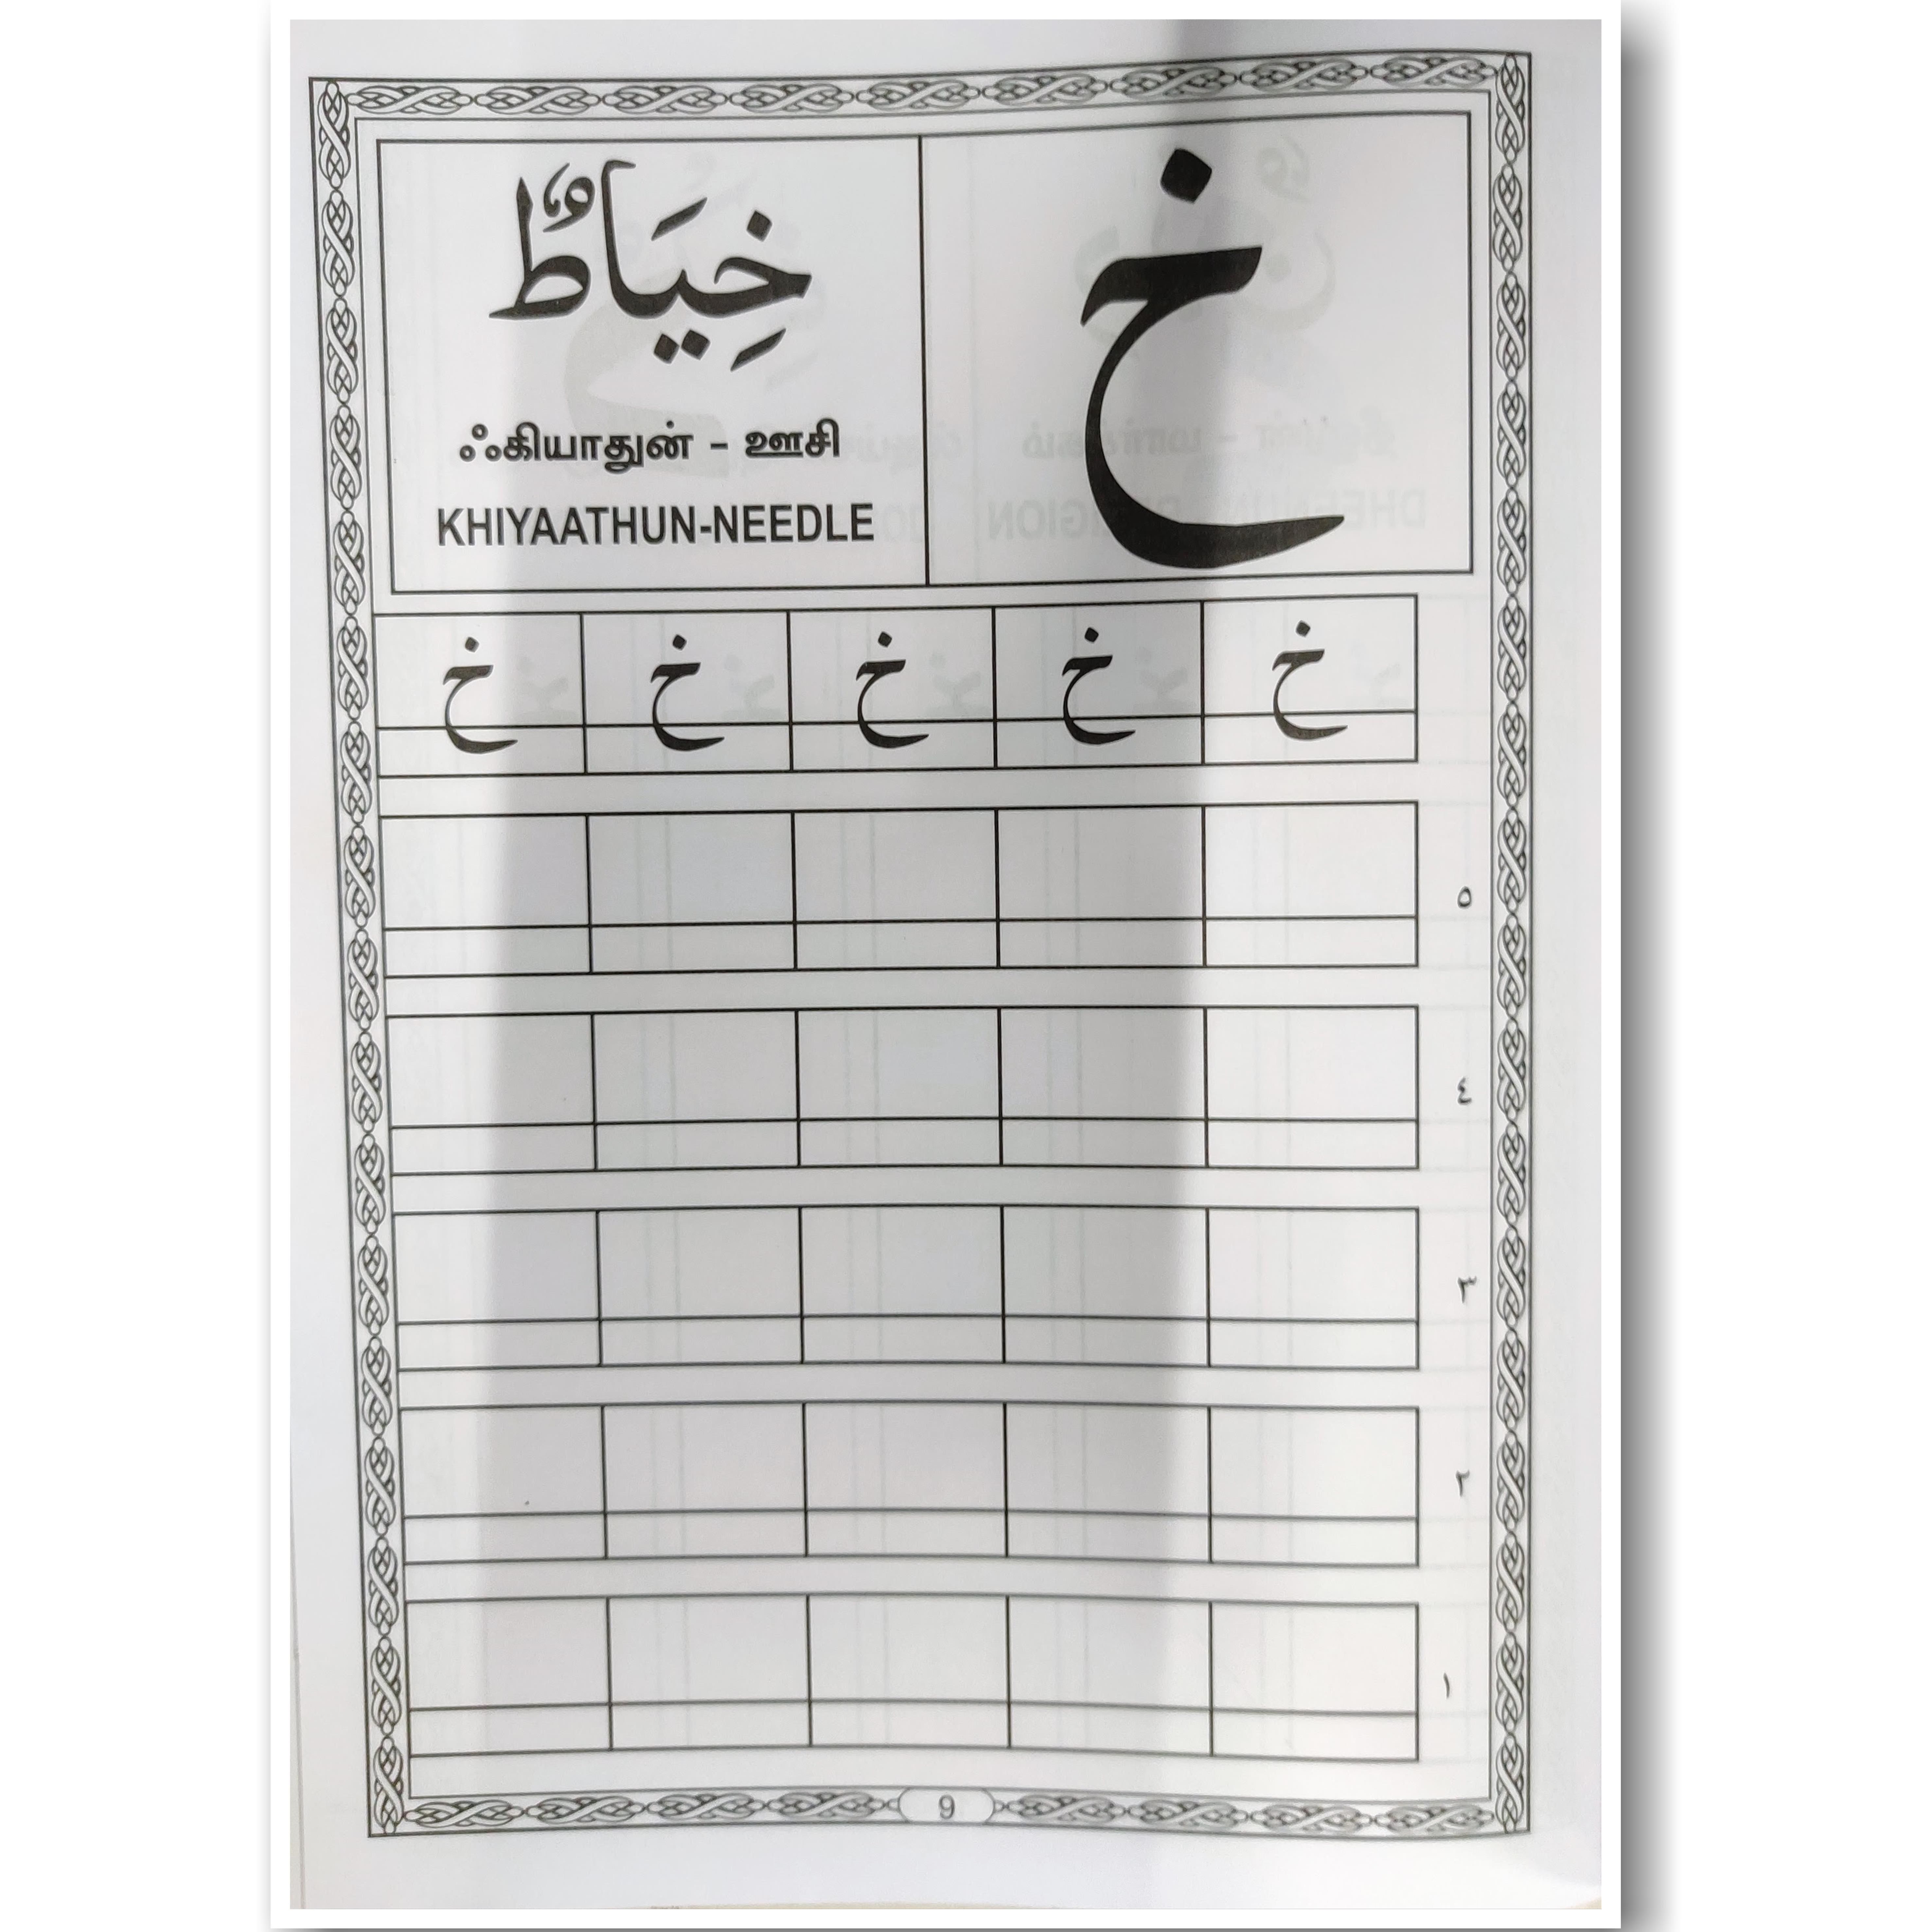 خ
خِيَاطٌ
ஃகியாதுன் - ஊசி
KHIYAATHUN-NEEDLE
خ خ خ خ خ
٥
٤
٣
٢
١
9